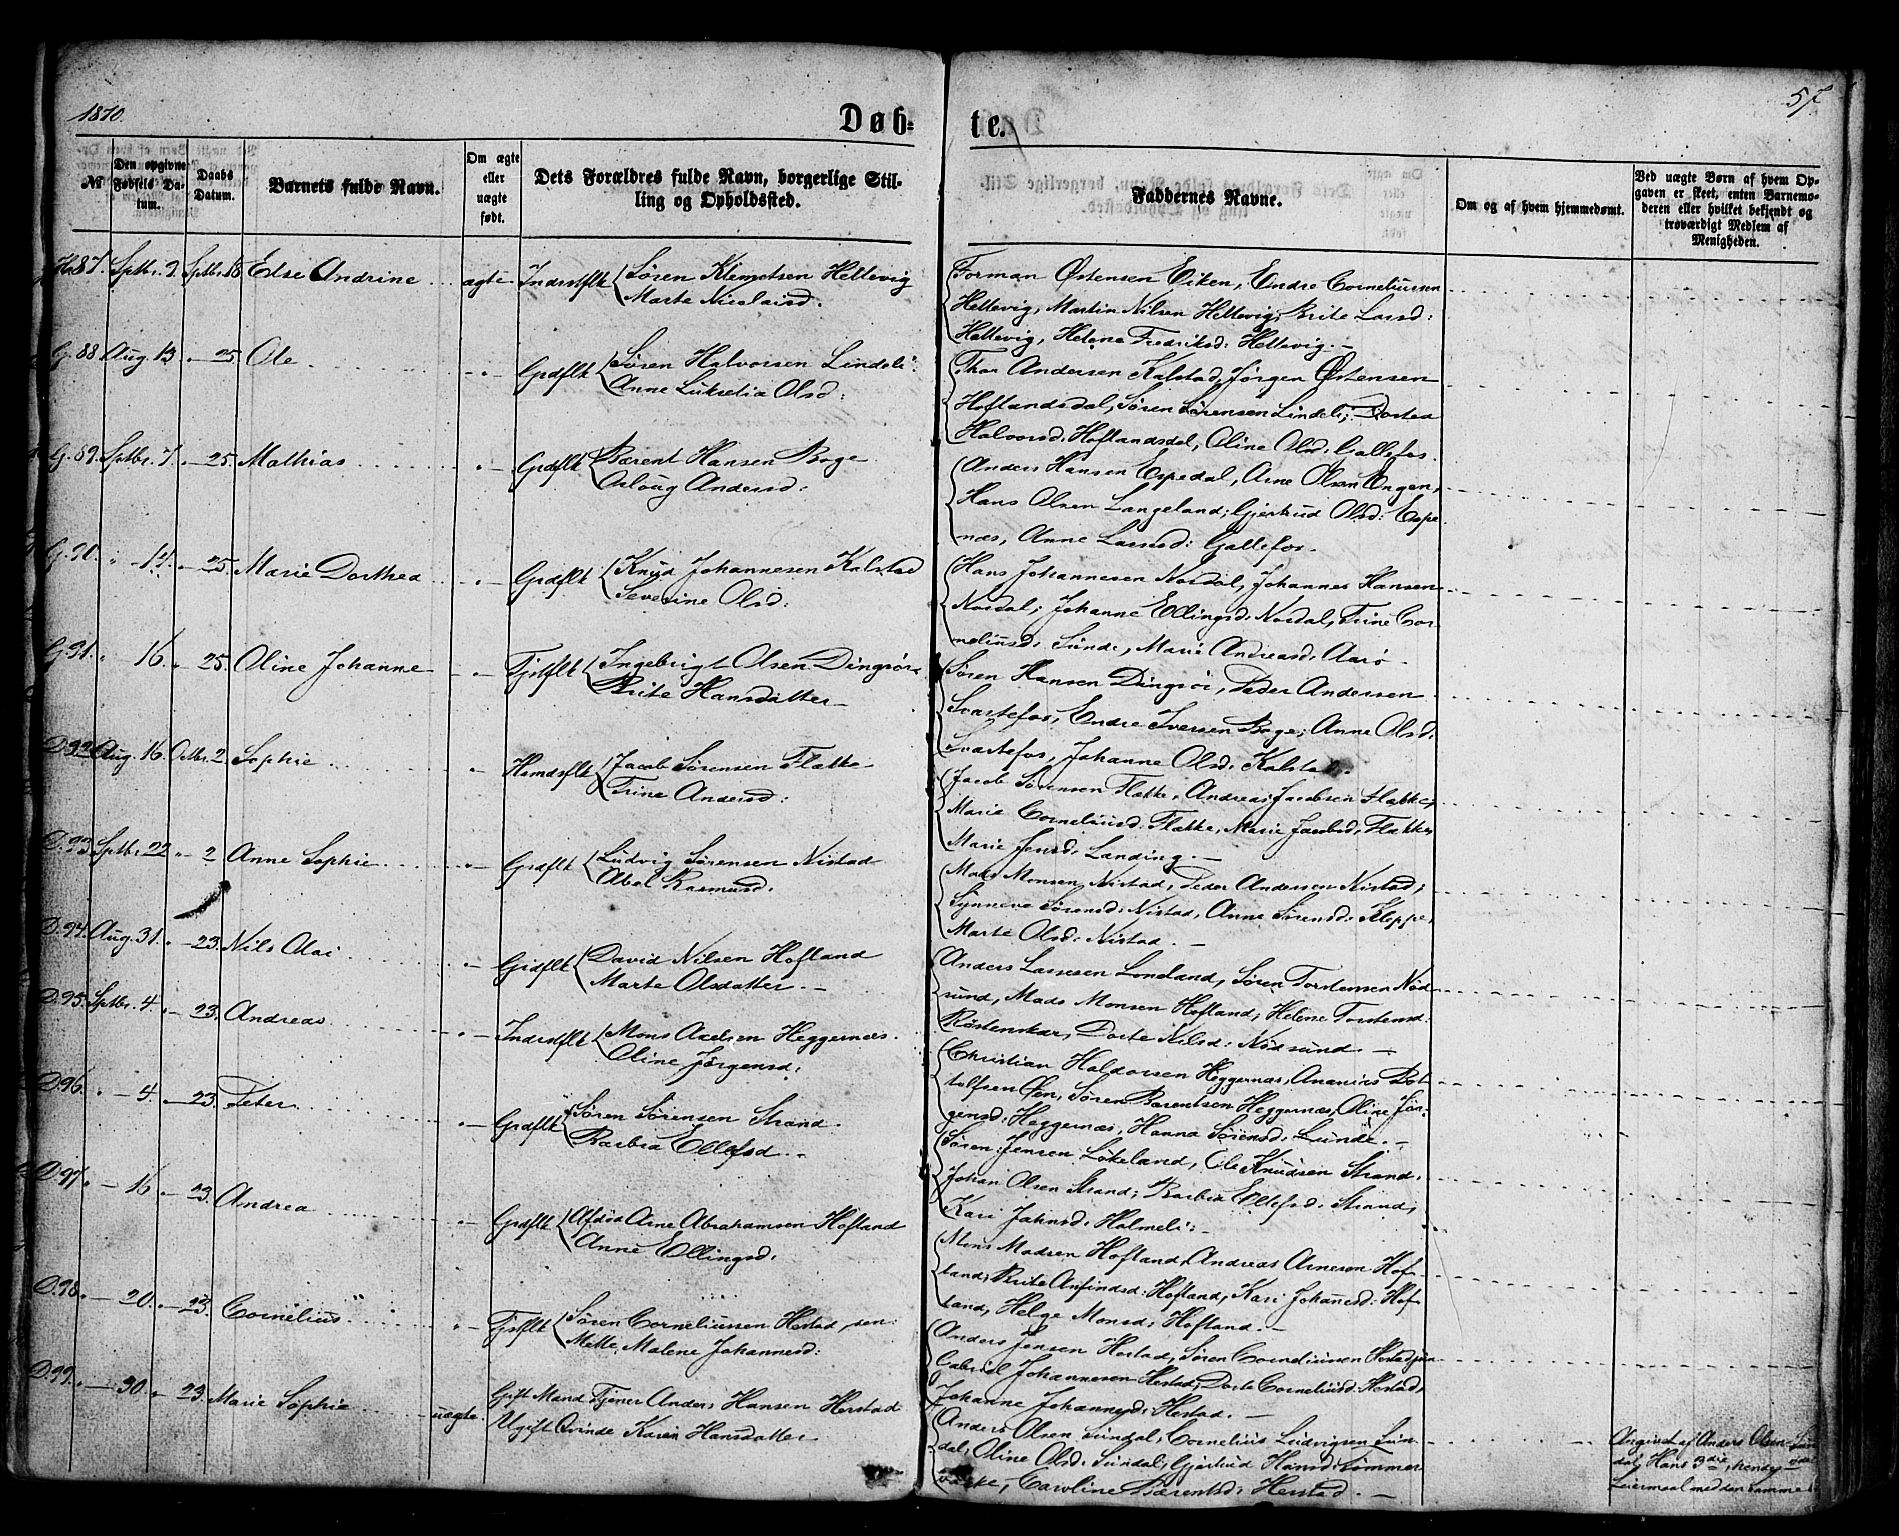 1870.
Døb-
te.
57
№
Den opgivne Fødsels Datum.
Daabs Datum.
Barnets fulde Navn.
Om ægte eller uægte født.
Dets Forældres fulde Navn, borgerlige Stilling og Opholdssted.
Faddernes Navne.
Om og af hvem hjemmedøbt.
Ved uægte Børn af hvem Opgaven er skeet, enten Barnemoderen eller hvilket bekjendt og troværdigt Medlem af Menigheden.
87. Sptbr. 9. Sptbr. 18 Else Andrine ægte Indrstflk Søren Klemetsen Hellevig
Marte Nicolaisd.
Forman Østensen Eiken, Endre Corneliussen
Hellevig, Martin Nilsen Hellevig, Brite Larsd:
Hellevig, Helene Fredriksd: Hellevig. —
G. 88 Aug. 13 " 25. Ole " Grdflk Søren Halvorsen Lindeli
Anne Lukretia Olsd:
Thor Andersen Kalstad, Jørgen Østensen
Hoflandsdal, Søren Sørensen Lindeli, Dortea
Halvorsd: Hoflandsdal, Oline Olsd: Gallefos.
G. 89. Sptbr. 7. " 25. Mathias " Grdflk Bærent Hansen Boge
Aslaug Andersd:
Anders Hansen Espedal, Arne Olsen Engen,
Hans Olsen Langeland, Gjertrud Olsd: Espe
næs, Anne Larsd: Gallefos.
G. 90. " 14. " 25. Marie Dorthea " Grdflk Knud Johannesen Kalstad
Severine Olsd:
Hans Johannesen Nordal, Johannes Hansen
Nordal, Johanne Ellingsd: Nordal, Trine Cor
neliusd: Sunde, Marie Andreasd: Aarø
G. 91. " 16. " 25. Oline Johanne " Tjstflk Ingebrigt Olsen Dingsør
Brite Hansdatter
Søren Hansen Dingsør, Peder Andersen
Svartefos, Endre Iversen Boge, Anne Olsd:
Svartefos, Johanne Olsd: Kalstad.
D. 92 Aug. 16. Octbr. 2. Sophie " Hsmdsflk Jacob Sørensen Flække
Trine Andersd:
Jacob Sørensen Flække, Andreas Jacobsen Flække,
Marie Corneliusd: Flække, Marie Jacobsd: Flække,
Marie Jensd: Landing. —
D. 93. Sptbr. 22 " 2 Anne Sophie " Grdflk Ludvig Sørensen Nistad
Abel Rasmusd:
Mads Monsen Nistad, Peder Andersen Nistad,
Synneve Sørensd: Nistad, Anne Sørensd: Kleppe,
Marte Olsd: Nistad. —
D. 94. Aug. 31. " 23. Nils Olai " Grdflk David Nilsen Hofland
Marte Olsdatter. —
Anders Larsen Loneland, Søren Torstensen Nød
sund, Mads Monsen Hofland, Helene Torstensd:
Røstenskar, Dorte Nilsd: Nødsund. —
D. 95. Sptbr. 4. " 23. Andreas " Indrstflk Mons Axelsen Heggernæs.
Oline Jørgensd:
Christian Haldorsen Heggernæs, Ananias Bot
tolfsen Øen, Søren Bærentsen Heggernæs, Oline Jør
gensd: Heggernæs, Hanna Sørensd: Lunde. —
D. 96. " 4. " 23. Peter " Grdflk Søren Sørensen Strand.
Barbra Ellefsd. —
Søren Jensen Løkeland, Ole Knudsen Strand,
Johan Olsen Strand, Barbra Ellefsd: Strand,
Kari Johnsd: Holmeli:
D. 97. " 16 " 23. Andrea " Grdflk Afdøe Arne Abrahamsen Hofland
Anne Ellingsd:
Mons Madsen Hofland, Andreas Arnesen Hof
land, Brite Anfindsd: Hofland, Kari Johannesd: Hof
land, Helge Monsd: Hofland. —
D. 98. " 20. " 23. Cornelius " Tjstflk Søren Corneliussen Hestad, sen:
Mette Malene Johannesd:
Anders Jensen Hestad, Søren Corneliussen Hestad jun
Gabriel Johannesen Hestad, Dorte Corneliusd: Hestad,
Johanne Johannesd: Hestad. —
D. 99. " 30. " 23. Marie Sophie uægte. Gift Mand Tjener Anders Hansen Herstad
Ugift Qvinde Karen Hansdatter
Anders Olsen Sundal, Cornelius Ludvigsen Sun
dal, Oline Olsd: Sundal, Gjertrud Hansd: Sømmer
, Caroline Bærentsd: Herstad. —
Angivet af Anders Olsen Sun
dal, Hans 3die, hendes
Leiermaal med den samme